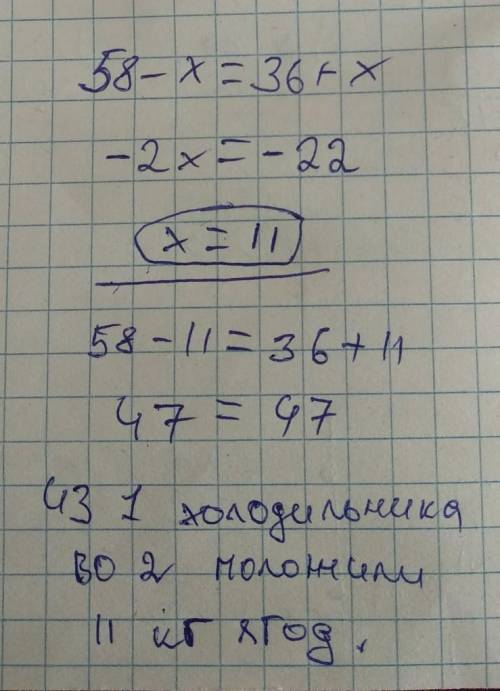 58 - x = 36 + x
-2x = -22
x = 11
58 - 11 = 36 + 11
47 = 47
Из 1 холодильника
во 2 положили
11 кг ягод.